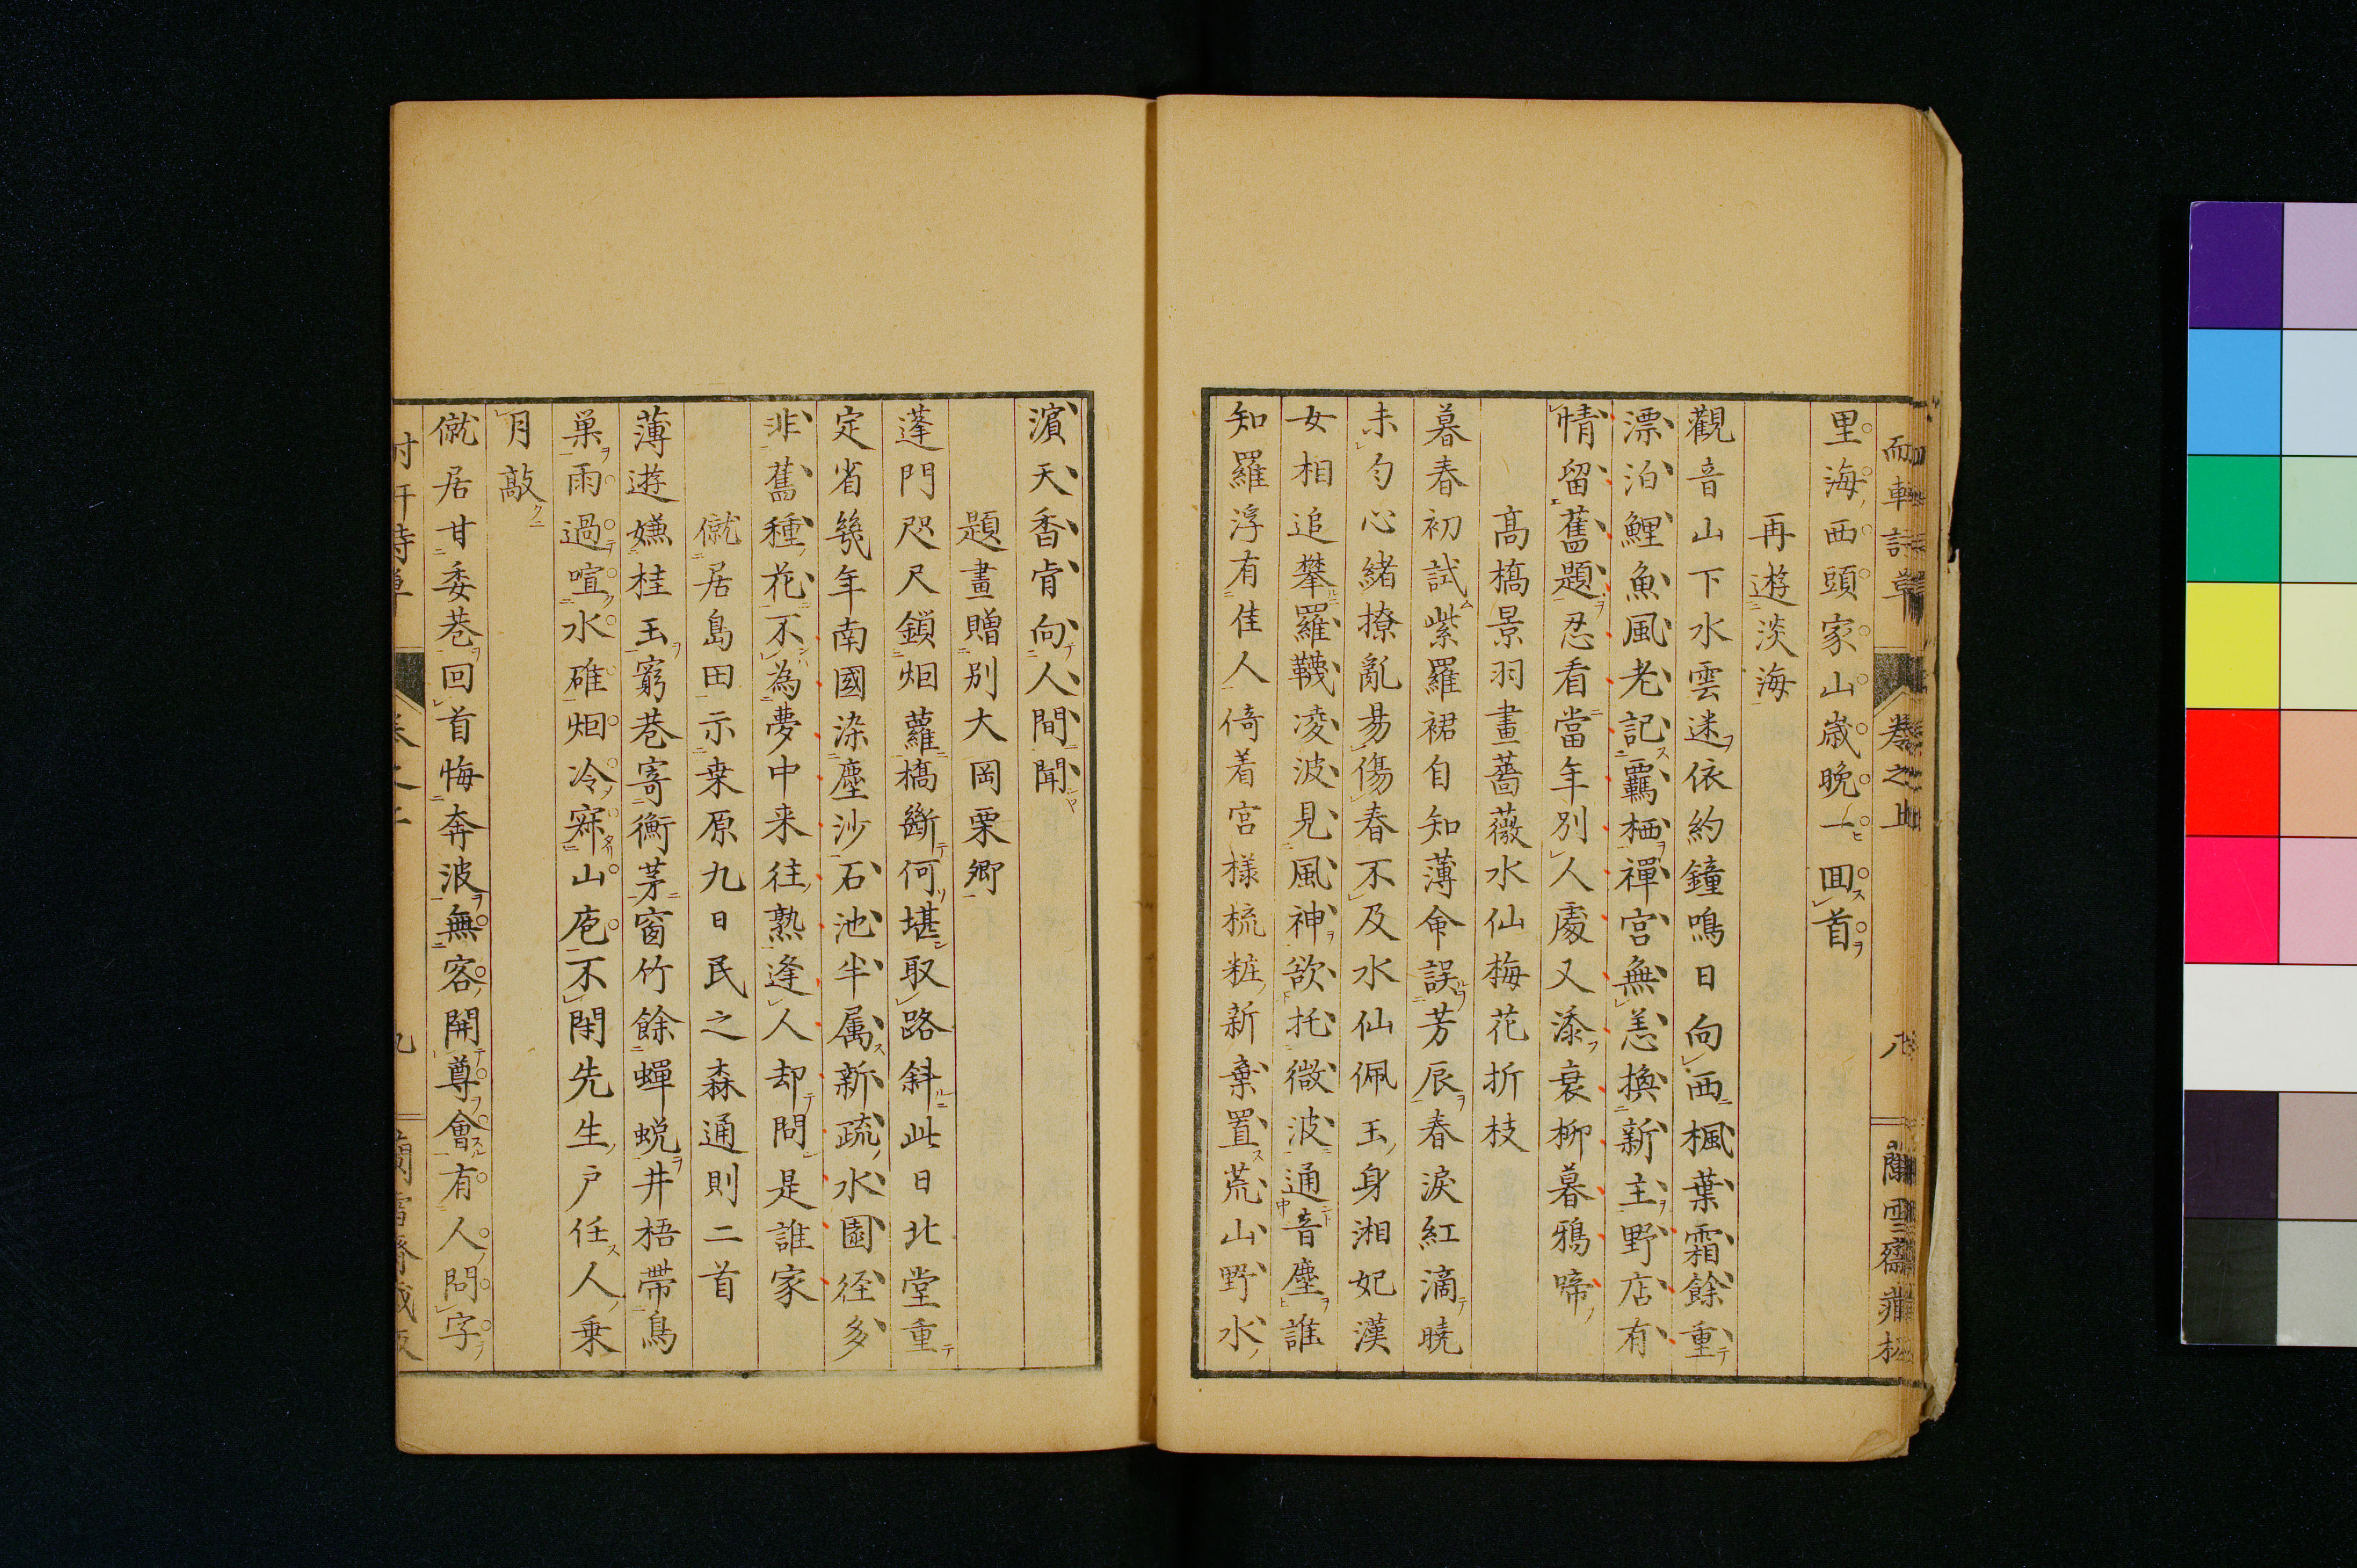 里海西頭家山歳晩一囬首
再遊淡海
觀音山下水雲迷依約鐘鳴日向西楓葉霜餘重
漂泊鯉魚風老記羈栖禪宮無恙換新主野店有
情留舊題忍看當年別人處又添衰柳暮鴉啼
髙橋景羽畫薔薇水仙梅花折枝
暮春初試紫羅裙自知薄命誤芳辰春淚紅滴曉
未勻心緒撩亂易傷春不及水仙佩玉身湘妃漢
女相追攀羅韈凌波見風神欲托微波通音塵誰
知羅浮有佳人倚着宮樣梳粧新棄置荒山野水
濵天香肯向人間聞
題畫贈別大岡栗卿
蓬門咫尺鎖烟蘿橋斷何堪取路斜此日北堂重
定省幾年南國染塵沙石池半属新疏水園径多
非舊種花不為夢中来往熟逢人却問是誰家
僦居島田示桒原九日民之森通則二首
薄遊嫌桂玉窮巷寄衡茅窗竹餘蟬蛻井梧帶鳥
巣雨過喧水碓烟冷寐山庖不閑先生戸任人乗
月敲
僦居甘委巷回首悔奔波無客開尊會有人問字